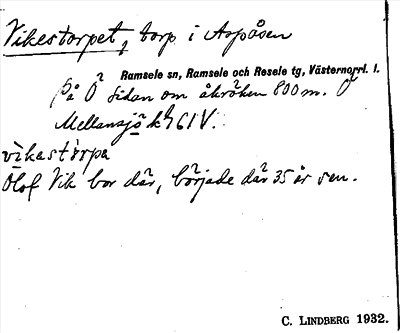 Vikestorpet, torp i Aspåsen
Ramsele sn, Ramsele och Resele tg, Västernorrl. l.
På Ö sidan om åkröken 800 m. Ö
Mellansjö k 61V.
Olof Vik bor där, började där 35 år sen.
C. LINDBERG 1932.